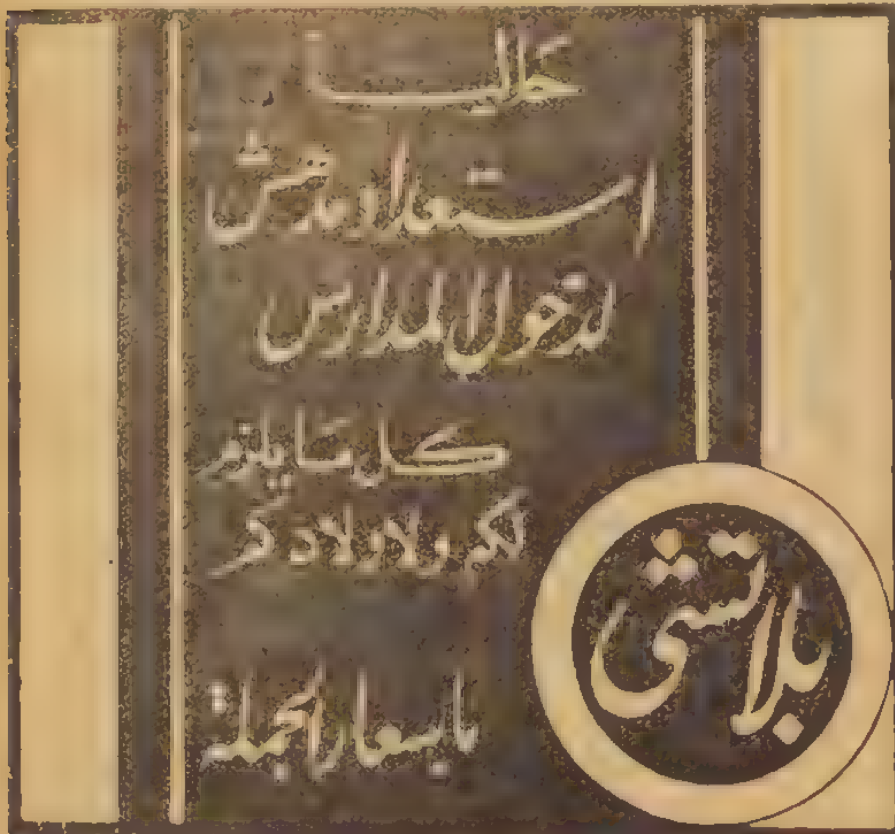 حاليا
استعداد مدهش
لدخول المدارس
كل ما يلزم
لكم ولاولادكم
باسعار الجملة
بلاتشي